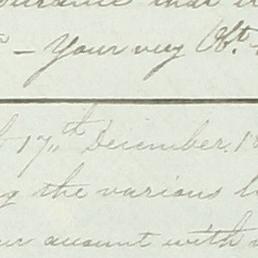 that
- Your very Obt.
17th December. 18
the various
account with